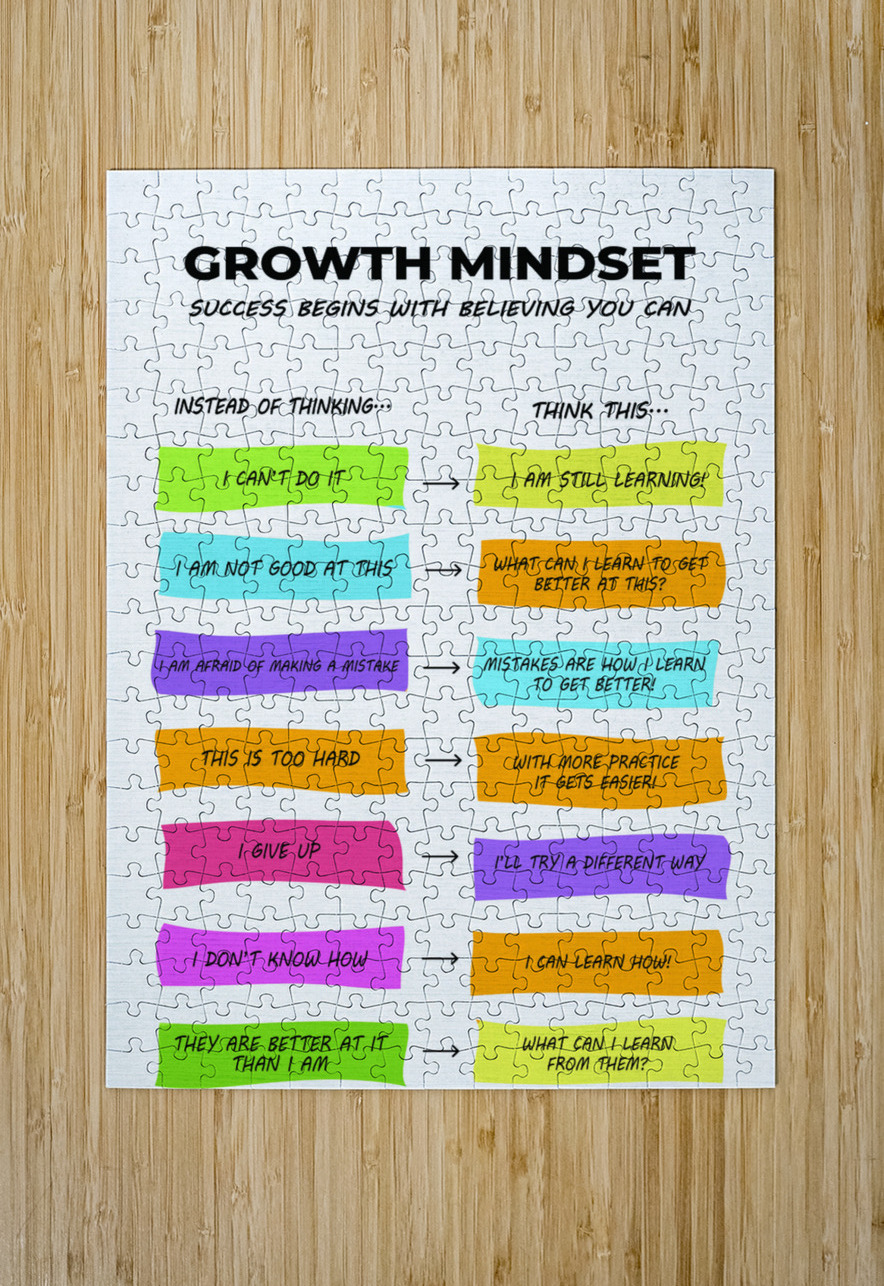 GROWTH MINDSET
SUCCESS BEGINS WITH BELIEVING YOU CAN
INSTEAD OF THINKING...
THINK THIS...
I CAN'T DO IT
I AM STILL LEARNING!
I AM NOT GOOD AT THIS
WHAT CAN I LEARN TO GET
BETTER AT THIS?
I AM AFRAID OF MAKING A MISTAKE
MISTAKES ARE HOW I LEARN
TO GET BETTER!
THIS IS TOO HARD
WITH MORE PRACTICE
IT GETS EASIER!
I GIVE UP
I'LL TRY A DIFFERENT WAY
I DON'T KNOW HOW
I CAN LEARN HOW!
THEY ARE BETTER AT IT
THAN I AM
WHAT CAN I LEARN
FROM THEM?